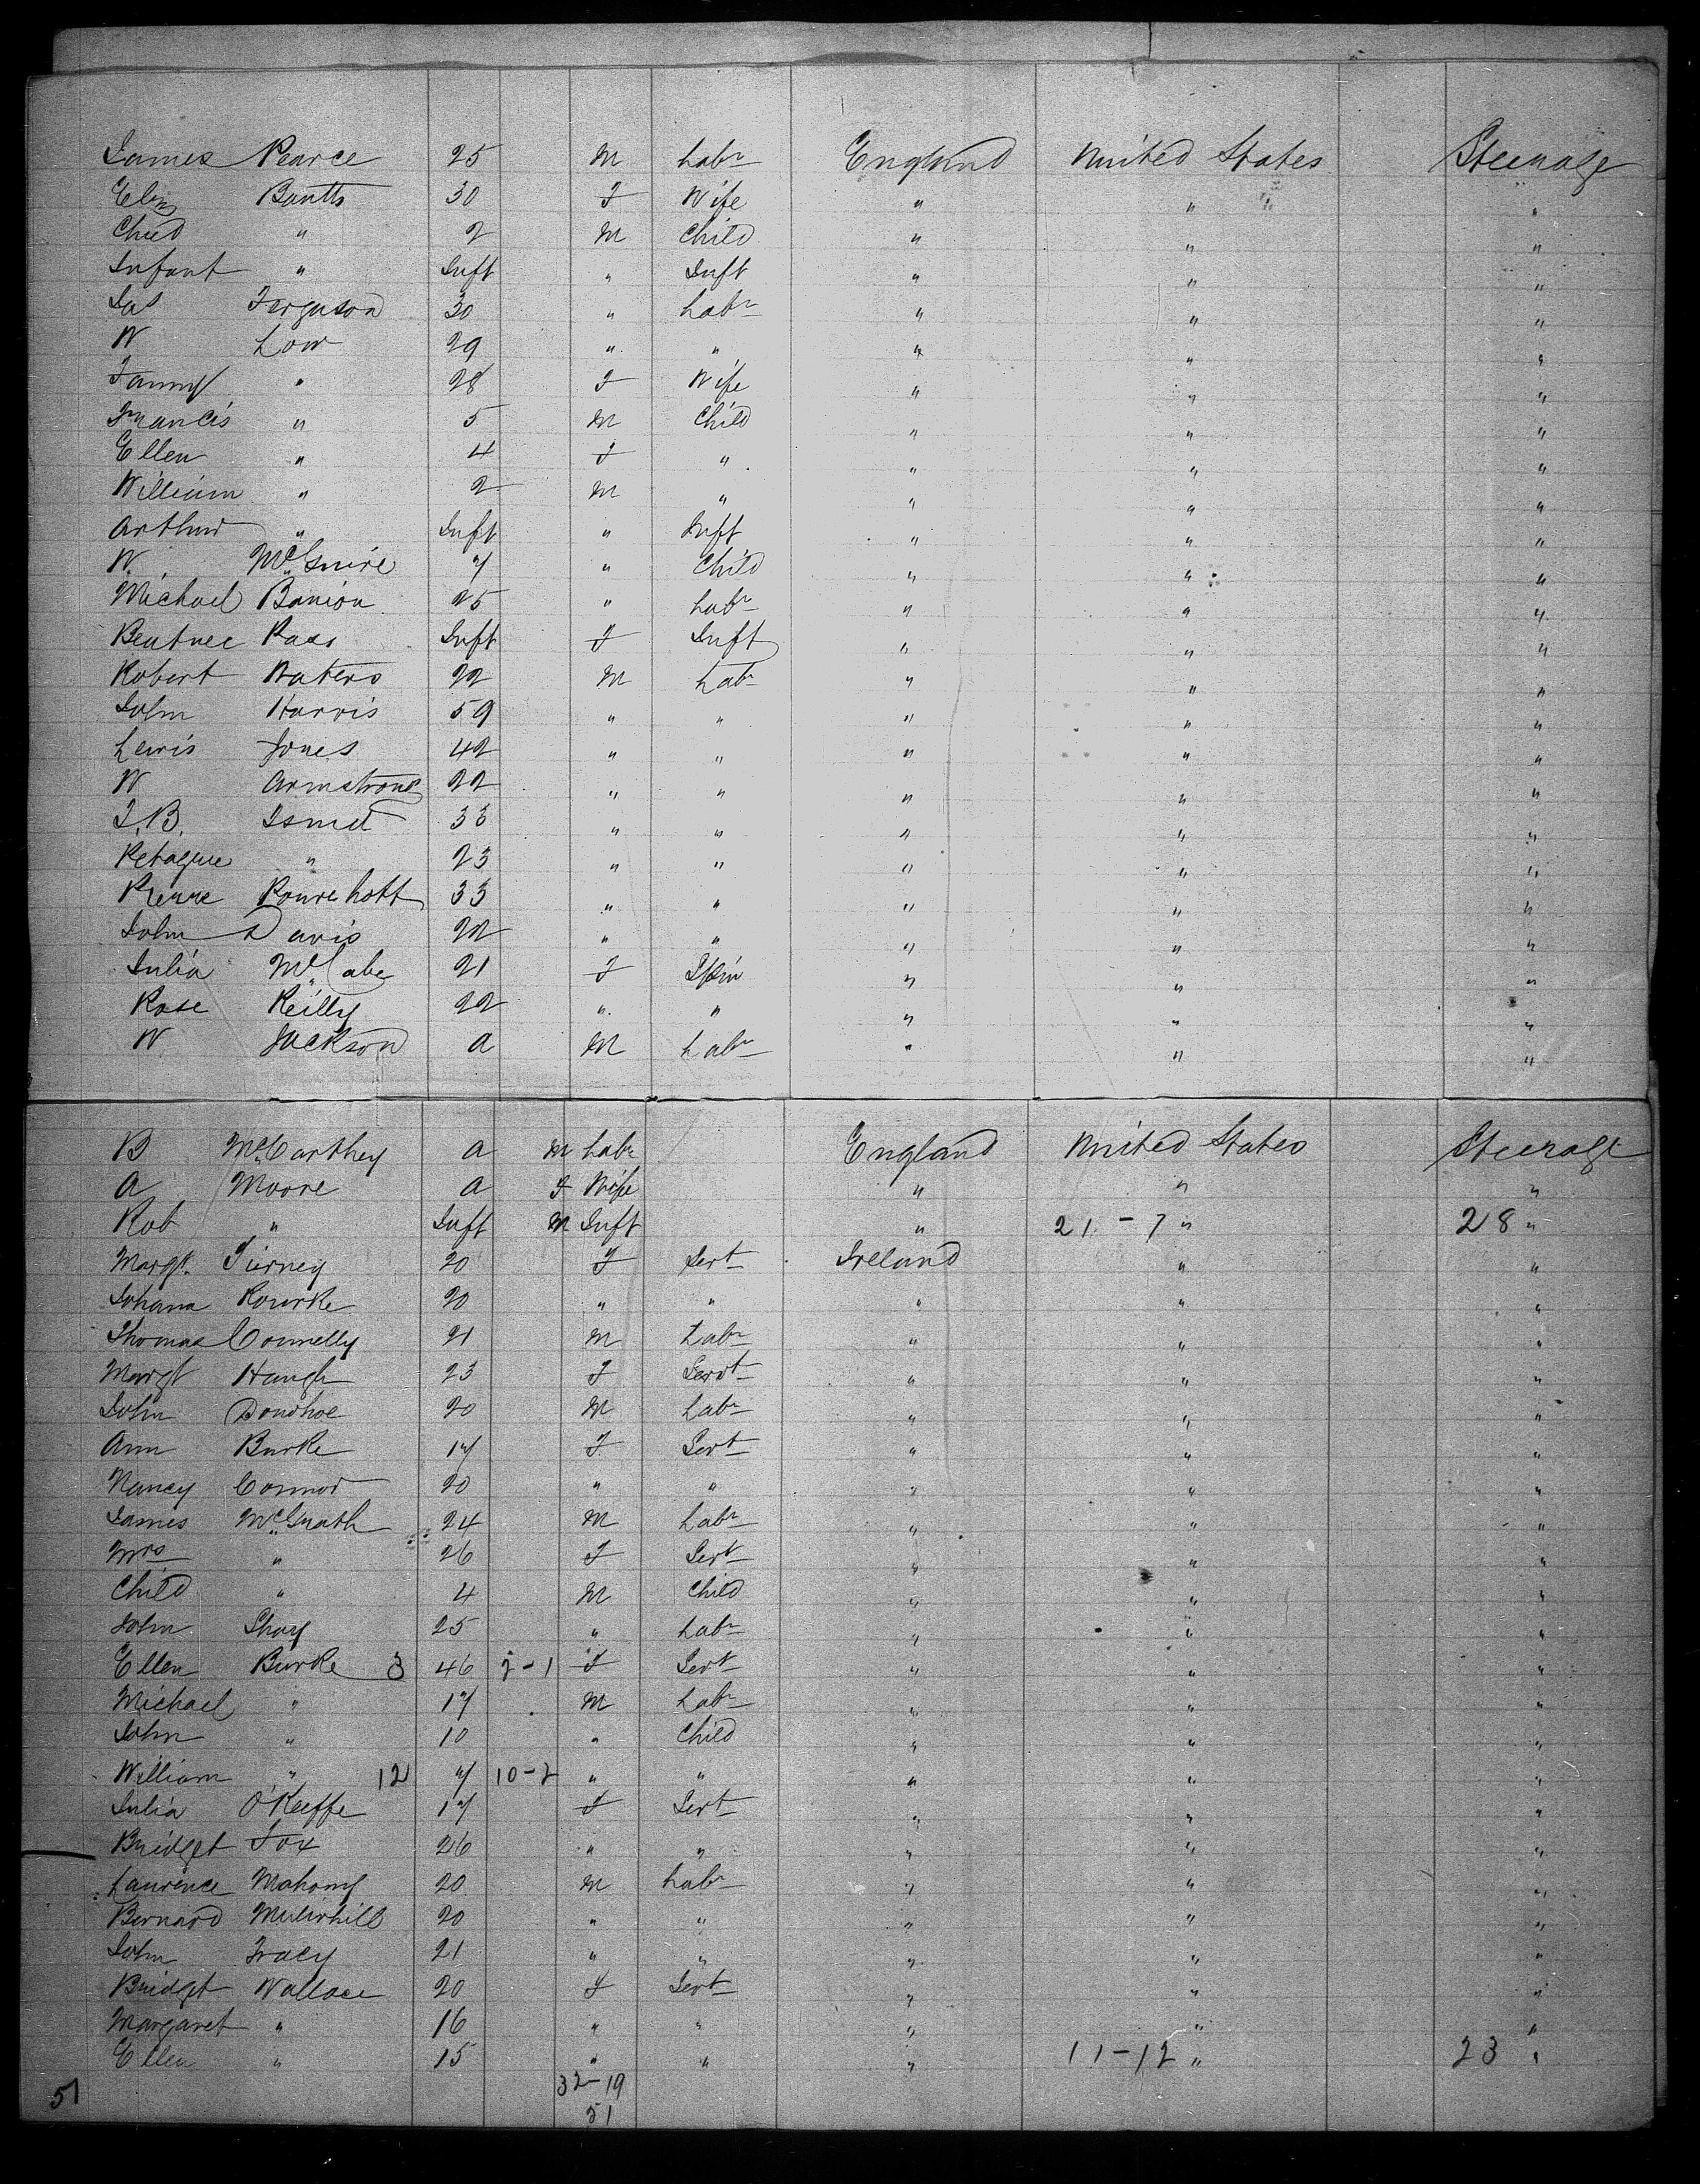 James Pearce 25 M Labr England United States Steerage
Eliz Bantts 30 F Wife " " "
Child " 2 M Child " " "
Infant " Inft " Inft " " "
Jas Ferguson 30 " Labr " " "
W Low 29 " " " " "
Fanny " 28 F Wife " " "
Francis " 5 M Child " " "
Ellen " 4 F " " " "
William " 2 M " " " "
Arthur " Inft " Inft " " "
W. McGuire 7 " Child " " "
Michael Banion 25 " Labr " " "
Beatrice Pass Inft F Inft " " "
Robert Waters 22 M Labr " " "
John Harris 59 " " " " "
Lewis Jones 42 " " " " "
W Armstrong 22 " " " " "
J.B. 33 " " " " "
" 23 " " " " "
Pierre 33 " " " " "
John Davis 22 " " " " "
Julia McCabe 21 F Spin " " "
Rose Reilly 22 " " " " "
W Jackson a M Labr " " "
B McCarthey a M Labr England United States Steerage
A Moore a F Wife " " "
Rob " Inft M Inft " 21-7 " 28 "
Margt. Tierney 20 F Servt Ireland " "
Johana Rourke 20 " " " " "
Thomas Connelly 21 M Labr " " "
Margt Haugh 23 F Servt " " "
John Donohoe 20 M Labr " " "
Ann Burke 17 F Servt " " "
Nancy Connor 20 " " " " "
James McGrath 24 M Labr " " "
Mrs " 26 F Servt " " "
Child " 4 M Child " " "
John 25 " Labr " " "
Ellen Burke 3 46 2-1 F Servt " " "
Michael " 17 M Labr " " "
John " 10 " Child " " "
William " 12 7 10-2 " " " " "
Julia O'Keeffe 17 F Servt " " "
Bridget Fox 26 " " " " "
Laurence Mahony 20 M Labr " " "
Bernard Mulvihill 20 " " " " "
John Tracy 21 " " " " "
Bridget Wallace 20 F Servt " " "
Margaret " 16 " " " " "
Ellen " 15 " " " 11-12 " 23 "
32-19
51 51